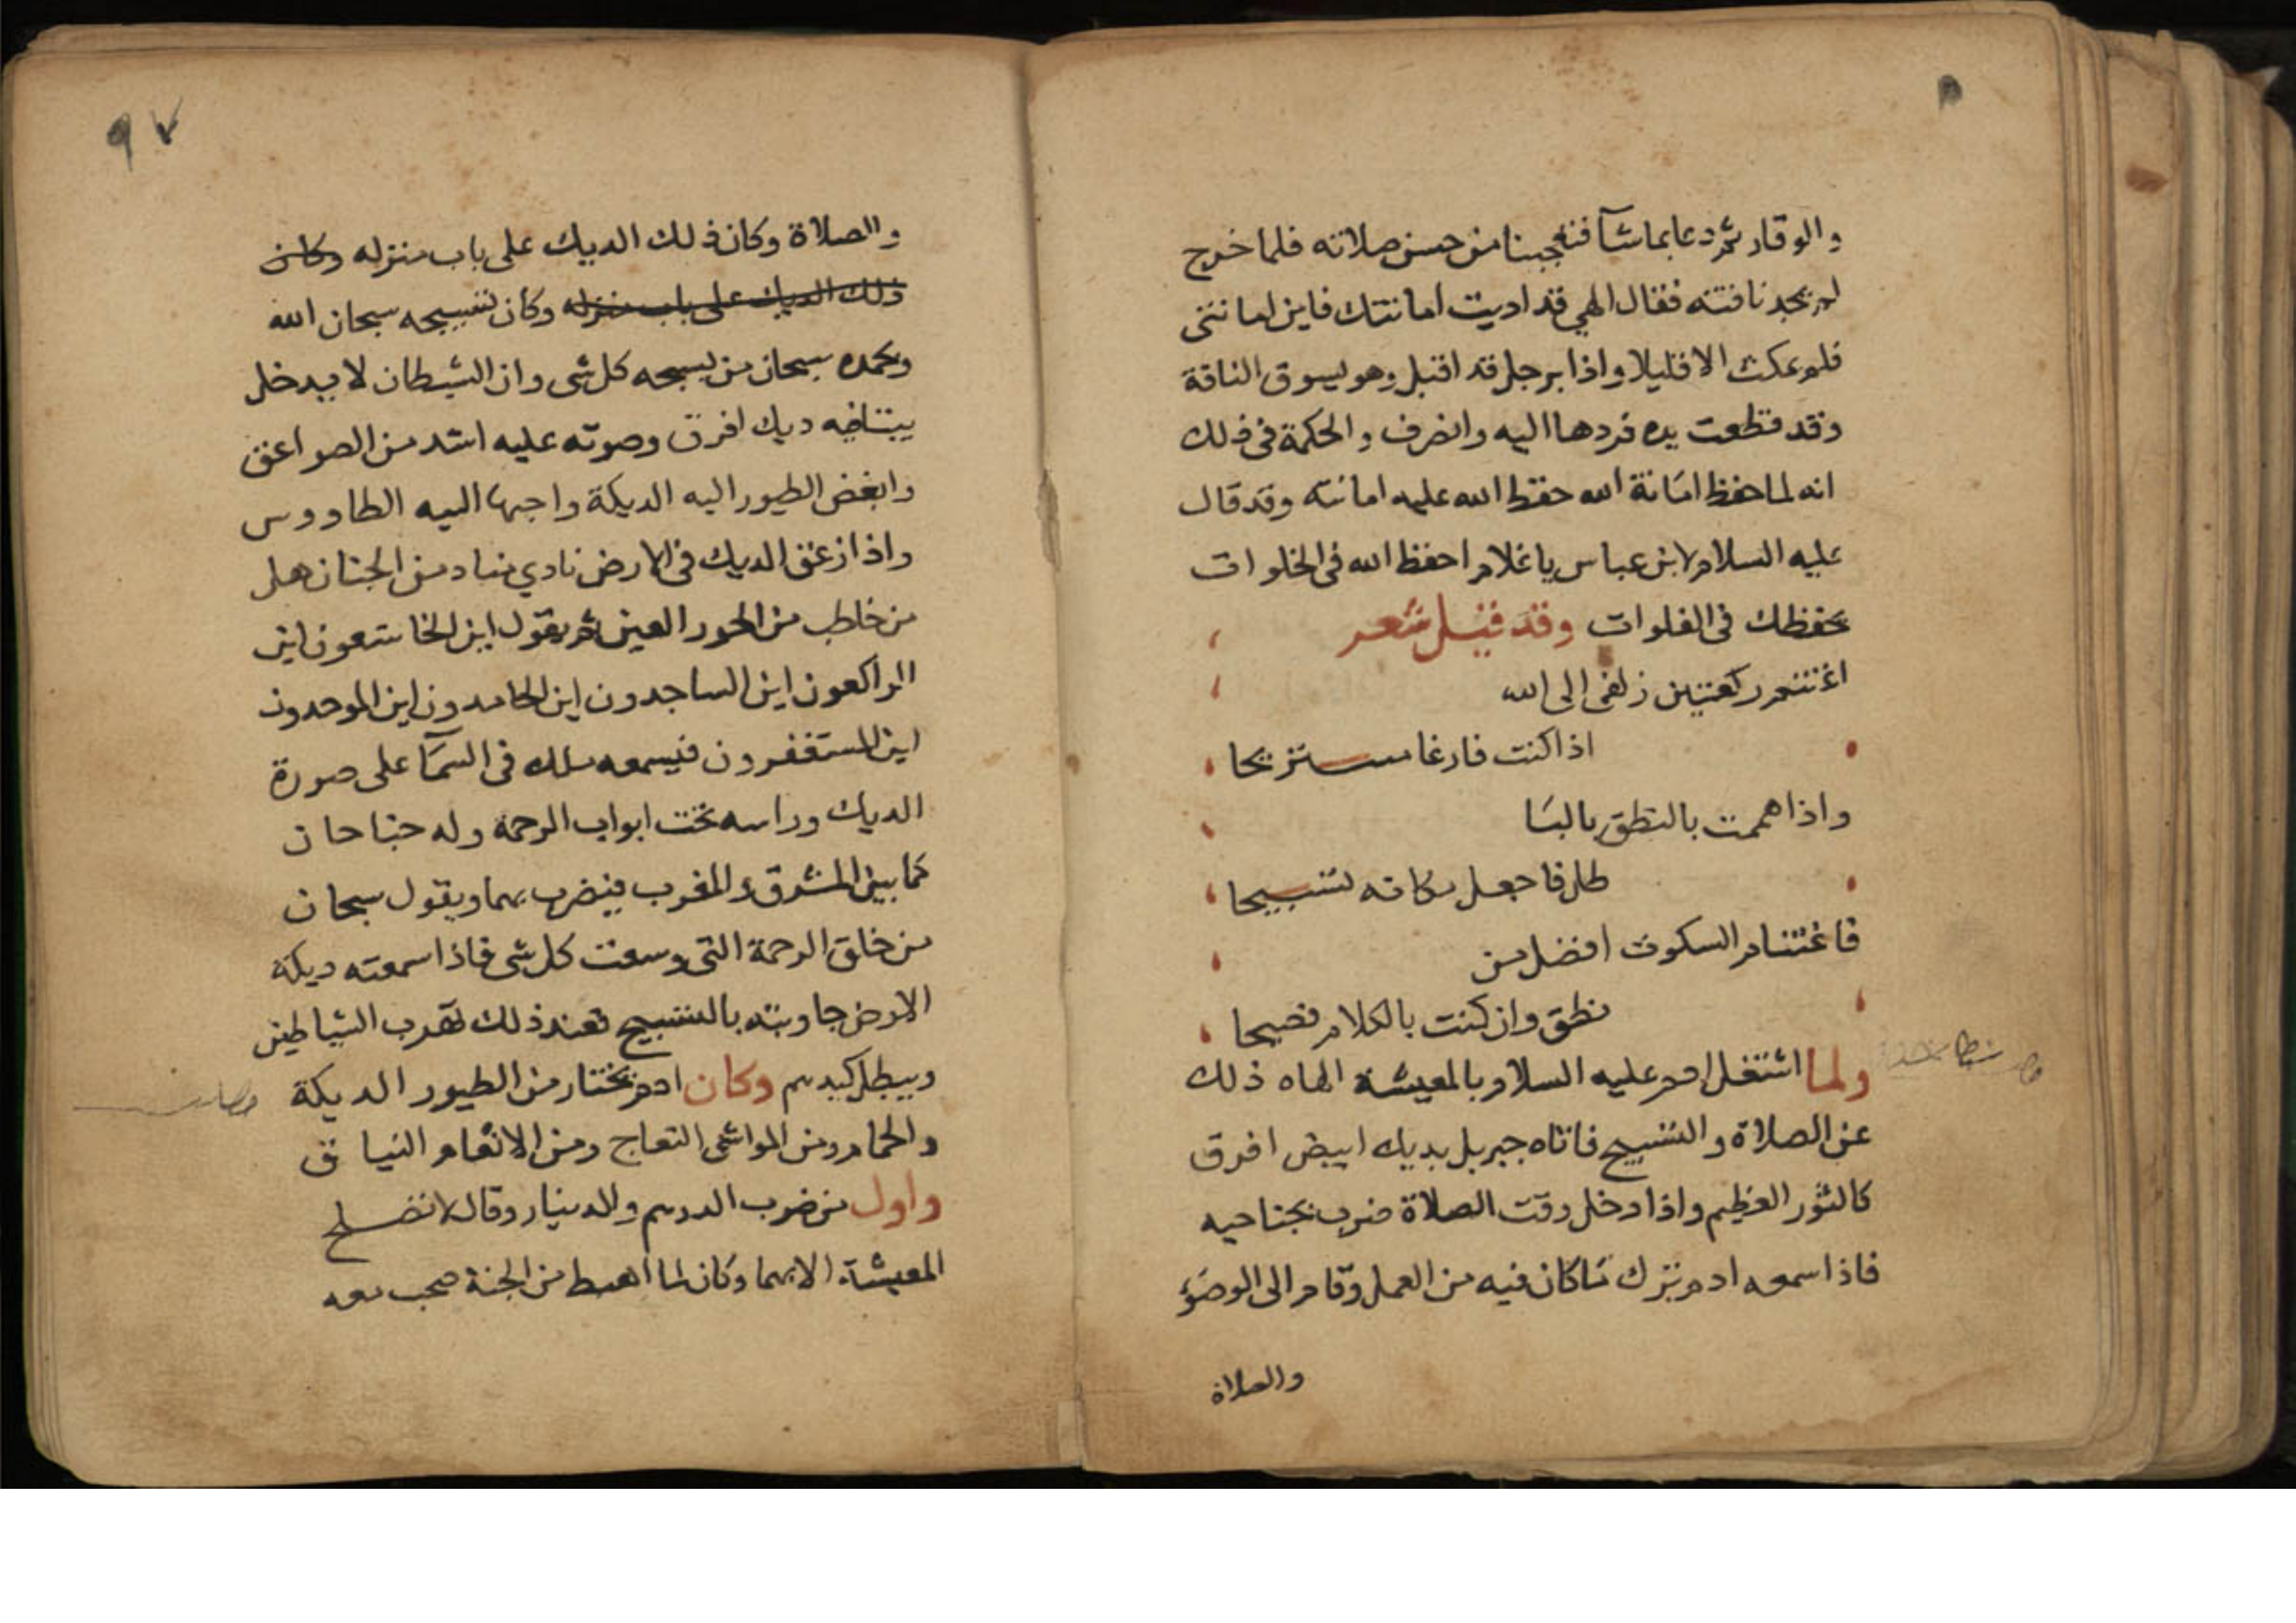 والوقار ثم دعا بما شآ فتعجبنا من حسن صلاته فلما خرج
لم يجد ناقته فقال الهي قد اديت امانتك فاين امانتي
فلم يمكث الا قليلا واذا برجل قد اقبل وهو يسوق الناقة
وقد قطعت يده فردها اليه وانصرف والحكمة في ذلك
انه لما حفظ امانة الله حفظ الله عليه امانته وقد قال
عليه السلام لابن عباس يا غلام احفظ الله في الخلوات
يحفظك في الفلوات وقد قيل شعر
اغتنم ركعتين زلفى الى الله
اذا كنت فارغا مستريحا
واذا هممت بالنطق بالبا
طل فاجعل مكانه تسبيحا
فاغتنام السكوت افضل من
نطق وان كنت بالكلام فصيحا
ولما اشتغل ادم عليه السلام بالمعيشة الهاه ذلك
عن الصلاة والتسبيح فاتاه جبريل بديك ابيض افرق
كالثور العظيم واذا دخل وقت الصلاة ضرب بجناحيه
فاذا سمعه ادم ترك ما كان فيه من العمل وقام الى الوضوء
والصلاة
٩٧
والصلاة وكان ذلك الديك على باب منزله وكان
ذلك الديك على باب منزله وكان تسبيحه سبحان الله
وبحمده سبحان من يسبحه كل شي وان الشيطان لا يدخل
بيتا فيه ديك افرق وصوته عليه اشد من الصواعق
وابغض الطيور اليه الديكة واحبها اليه الطاووس
واذا زعق الديك في الارض نادي مناد من الجنان هل
من خاطب من الحور العين ثم يقول اين الخاشعون اين
الراكعون اين الساجدون اين الحامدون اين الموحدون
اين المستغفرون فيسمعه ملك في السمآ على صورة
الديك وراسه تحت ابواب الرحمة وله جناحان
كما بين المشرق والمغرب فيضرب بهما ويقول سبحان
من خلق الرحمة التي وسعت كل شي فاذا سمعته ديكة
الارض جاوبته بالتسبيح فعند ذلك تهرب الشياطين
ويبطل كيدهم وكان ادم يختار من الطيور الديكة
والحمام ومن المواشي النعاج ومن الانعام النياق
واول من ضرب الدرهم والدينار وقال لا تصلح
المعيشة الا بهما وكان لما اهبط من الجنة صحب معه